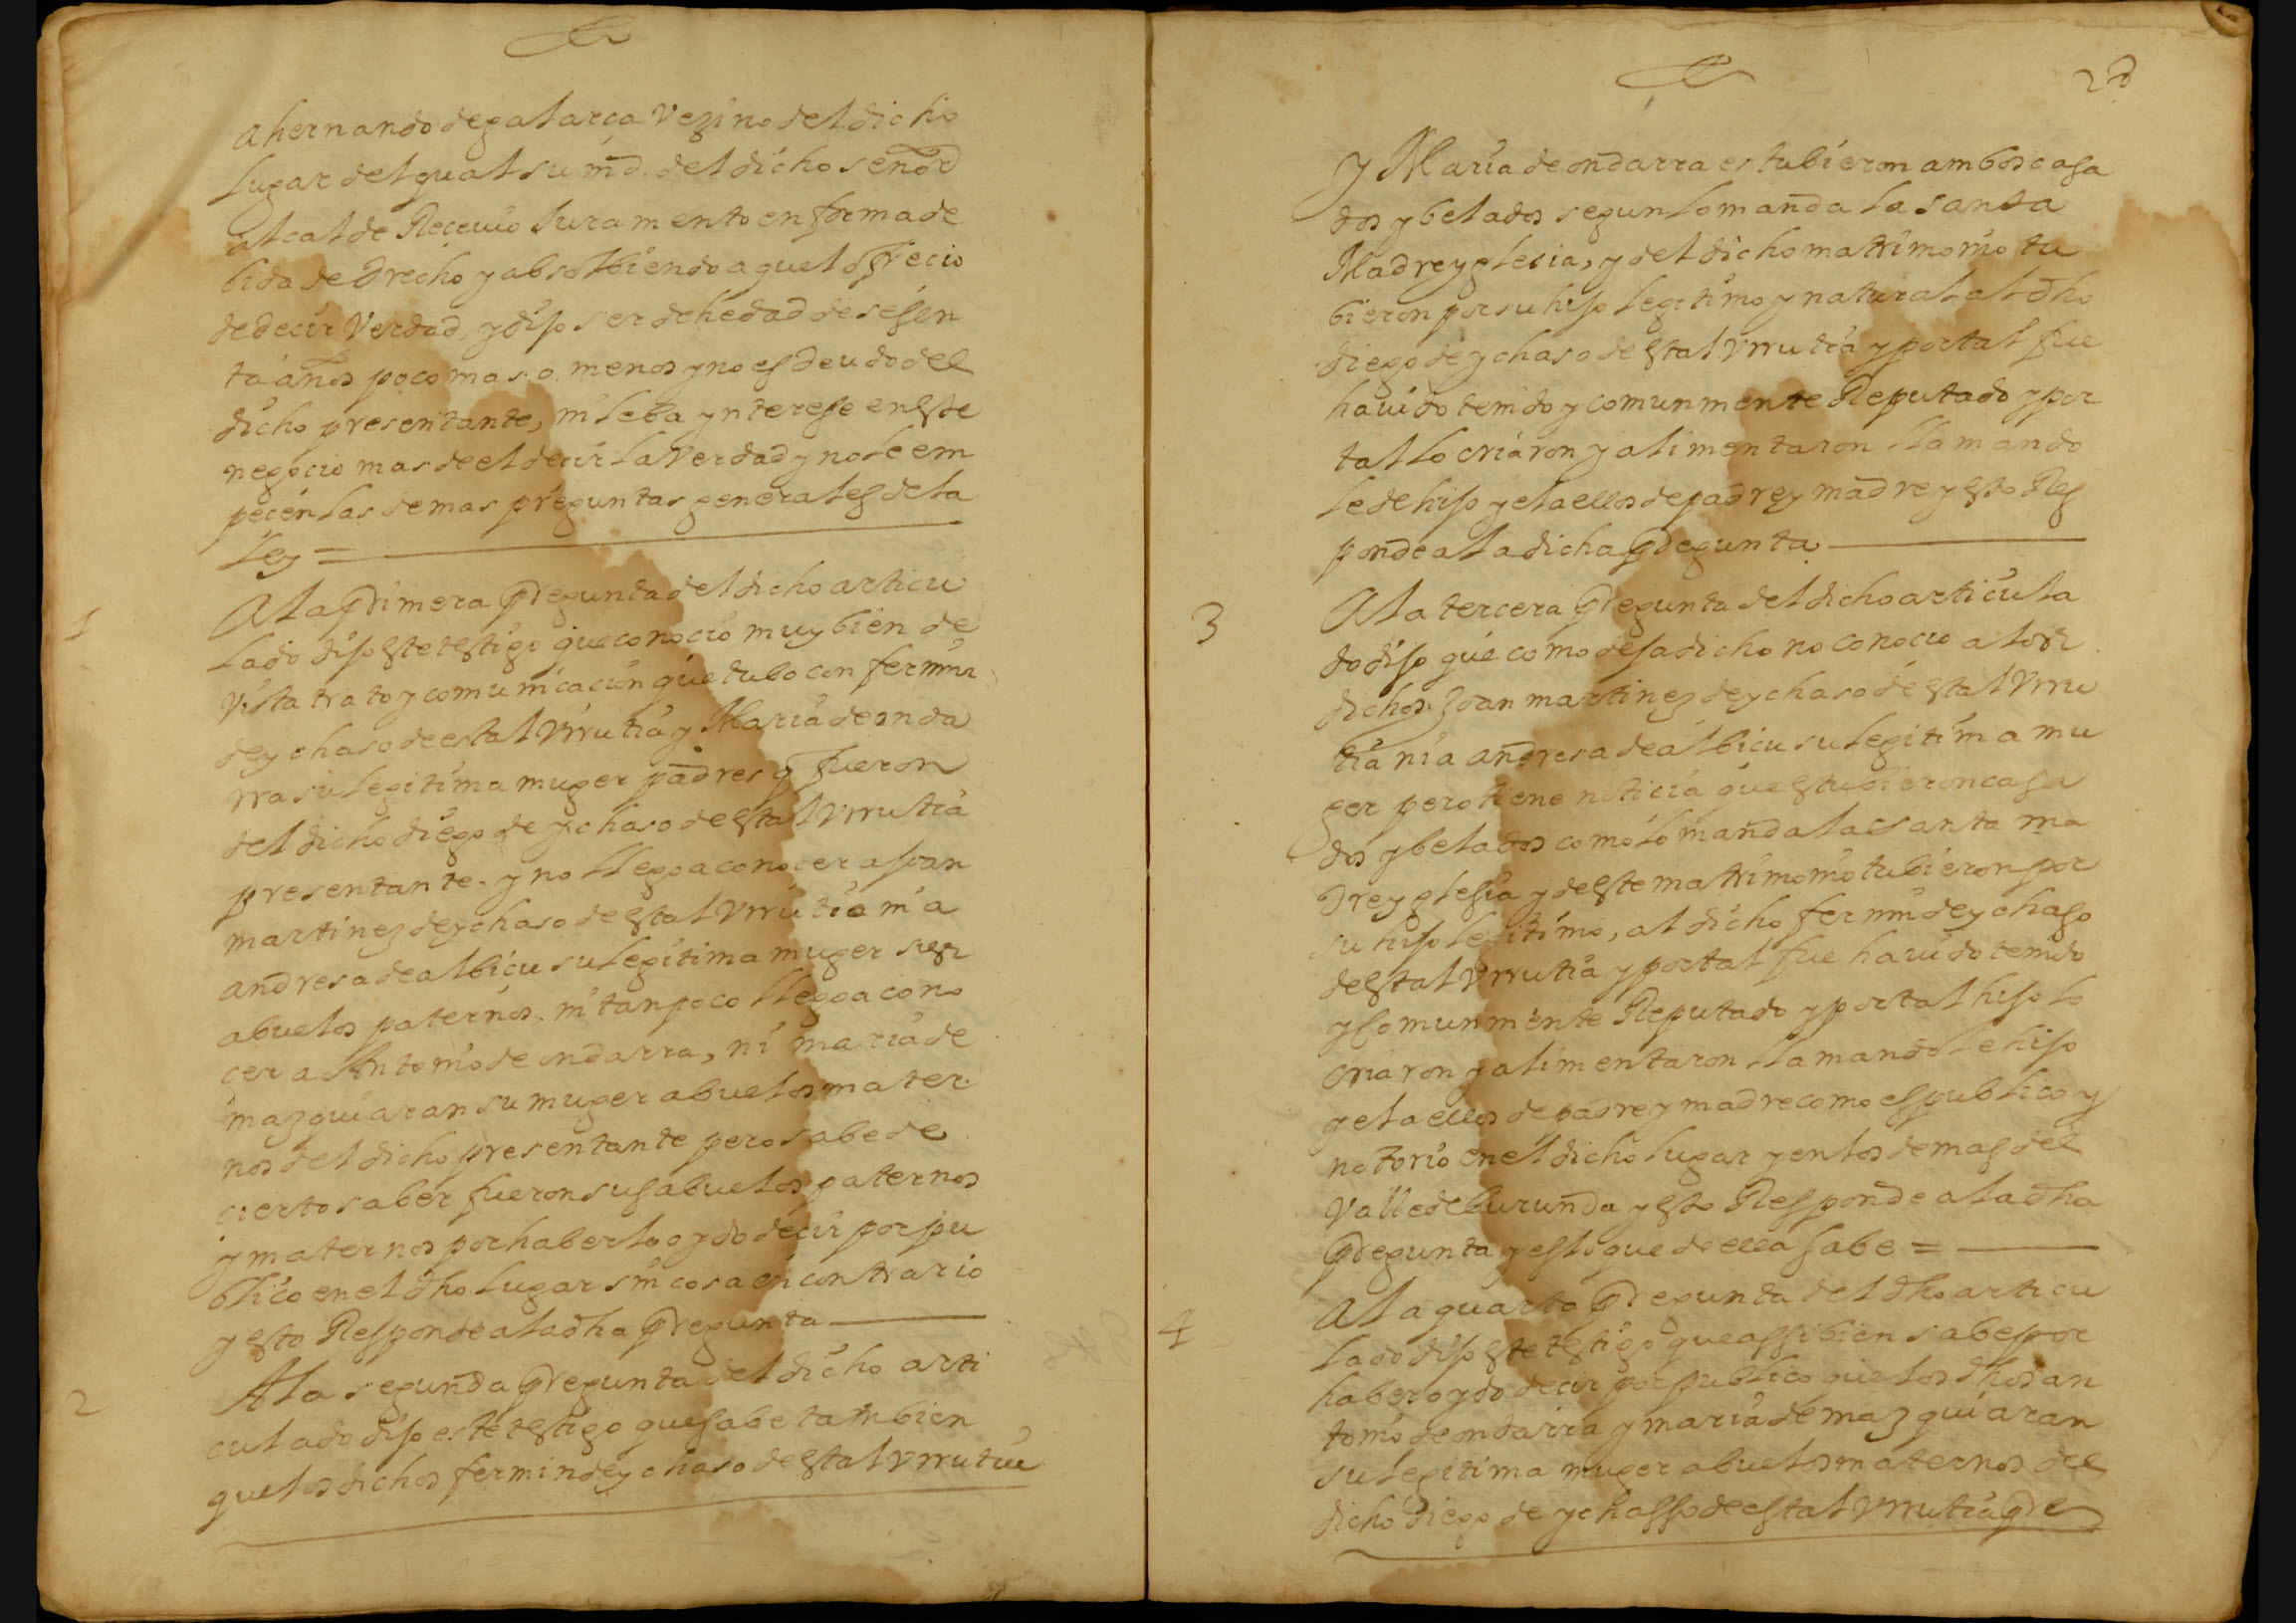 a hernando de galarça Vezino del dicho
lugar del qual su md. del dicho señor
alcalde Reçeuio Juramento en forma de
bida de Drecho y absolbiendo aquel ofrecio
de decir Verdad, y dijo ser de hedad de sesen
ta años poco mas o menos y no es Deudo del
dicho presentante, ni leba ynterese en este
negocio mas de el decir la Verdad y no le em
peçen las demas preguntas generales de la
Ley =
1
A la primera pregunta del dicho articu
lado dijo este testigo que conocio muy bien de
Vista trato y comunicacion que tubo con fermin
de ychaso de estal Vrrutia y Maria de onda
rra su legitima muger padres q fueron
del dicho diego de ychaso de estal Vrrutia
presentante. y no llego a conocer a joan
martinez de ychaso de estal Vrrutia ni a
andresa de albiçu su legitima muger sus
abuelos paternos. ni tanpoco llego a cono
cer a Antonio de ondarra, ni maria de
mazquiaran su muger abuelos mater
nos del dicho presentante pero sabe de
cierto saber fueron sus abuelos paternos
y maternos por haberlo oydo decir por pu
blico en el dho lugar sin cosa en contrario
y esto Responde a la dha pregunta
2
A la segunda pregunta del dicho arti
culado dijo este testigo que sabe tambien
que los dichos fermin de ychaso de estal Vrrutia
y Maria de ondarra estubieron ambos casa
dos y belados segun lo manda la santa
Madre yglesia, y del dicho matrimonio tu
bieron por su hijo legitimo y natural al dho
diego de ychaso de estal Vrrutia y por tal fue
hauido tenido y comunmente Reputado y por
tal lo criaron y alimentaron llamando
le de hijo y el a ellos de padre y madre y esto Res
ponde a la dicha pregunta
3
A la tercera pregunta del dicho articula
do dijo que como deja dicho no conocio a los
dichos Joan martinez de ychaso de estal Vrru
tia ni a andresa de albiçu su legitima mu
ger pero tiene noticia que estubieron casa
dos y belados como lo manda la santa ma
dre yglesia y deste matrimonio tubieron por
su hijo legitimo, al dicho fermin de ychaso
de estal Vrrutia y por tal fue hauido tenido
y Comunmente Reputado y por tal hijo lo
criaron y alimentaron llamandole hijo
y el a ellos de padre y madre como es publico y
notorio en el dicho lugar y en los demas del
Valle de burunda y esto Responde a la dha
pregunta y es lo que de ella sabe =
4
A la quarta pregunta del dho articu
lado dijo este testigo que assi bien sabe por
haber oydo decir por publico que los dhos an
tonio de ondarra y maria de mazquiaran
su legitima muger abuelos maternos del
dicho diego de ychasso de estal Vrrutia pre